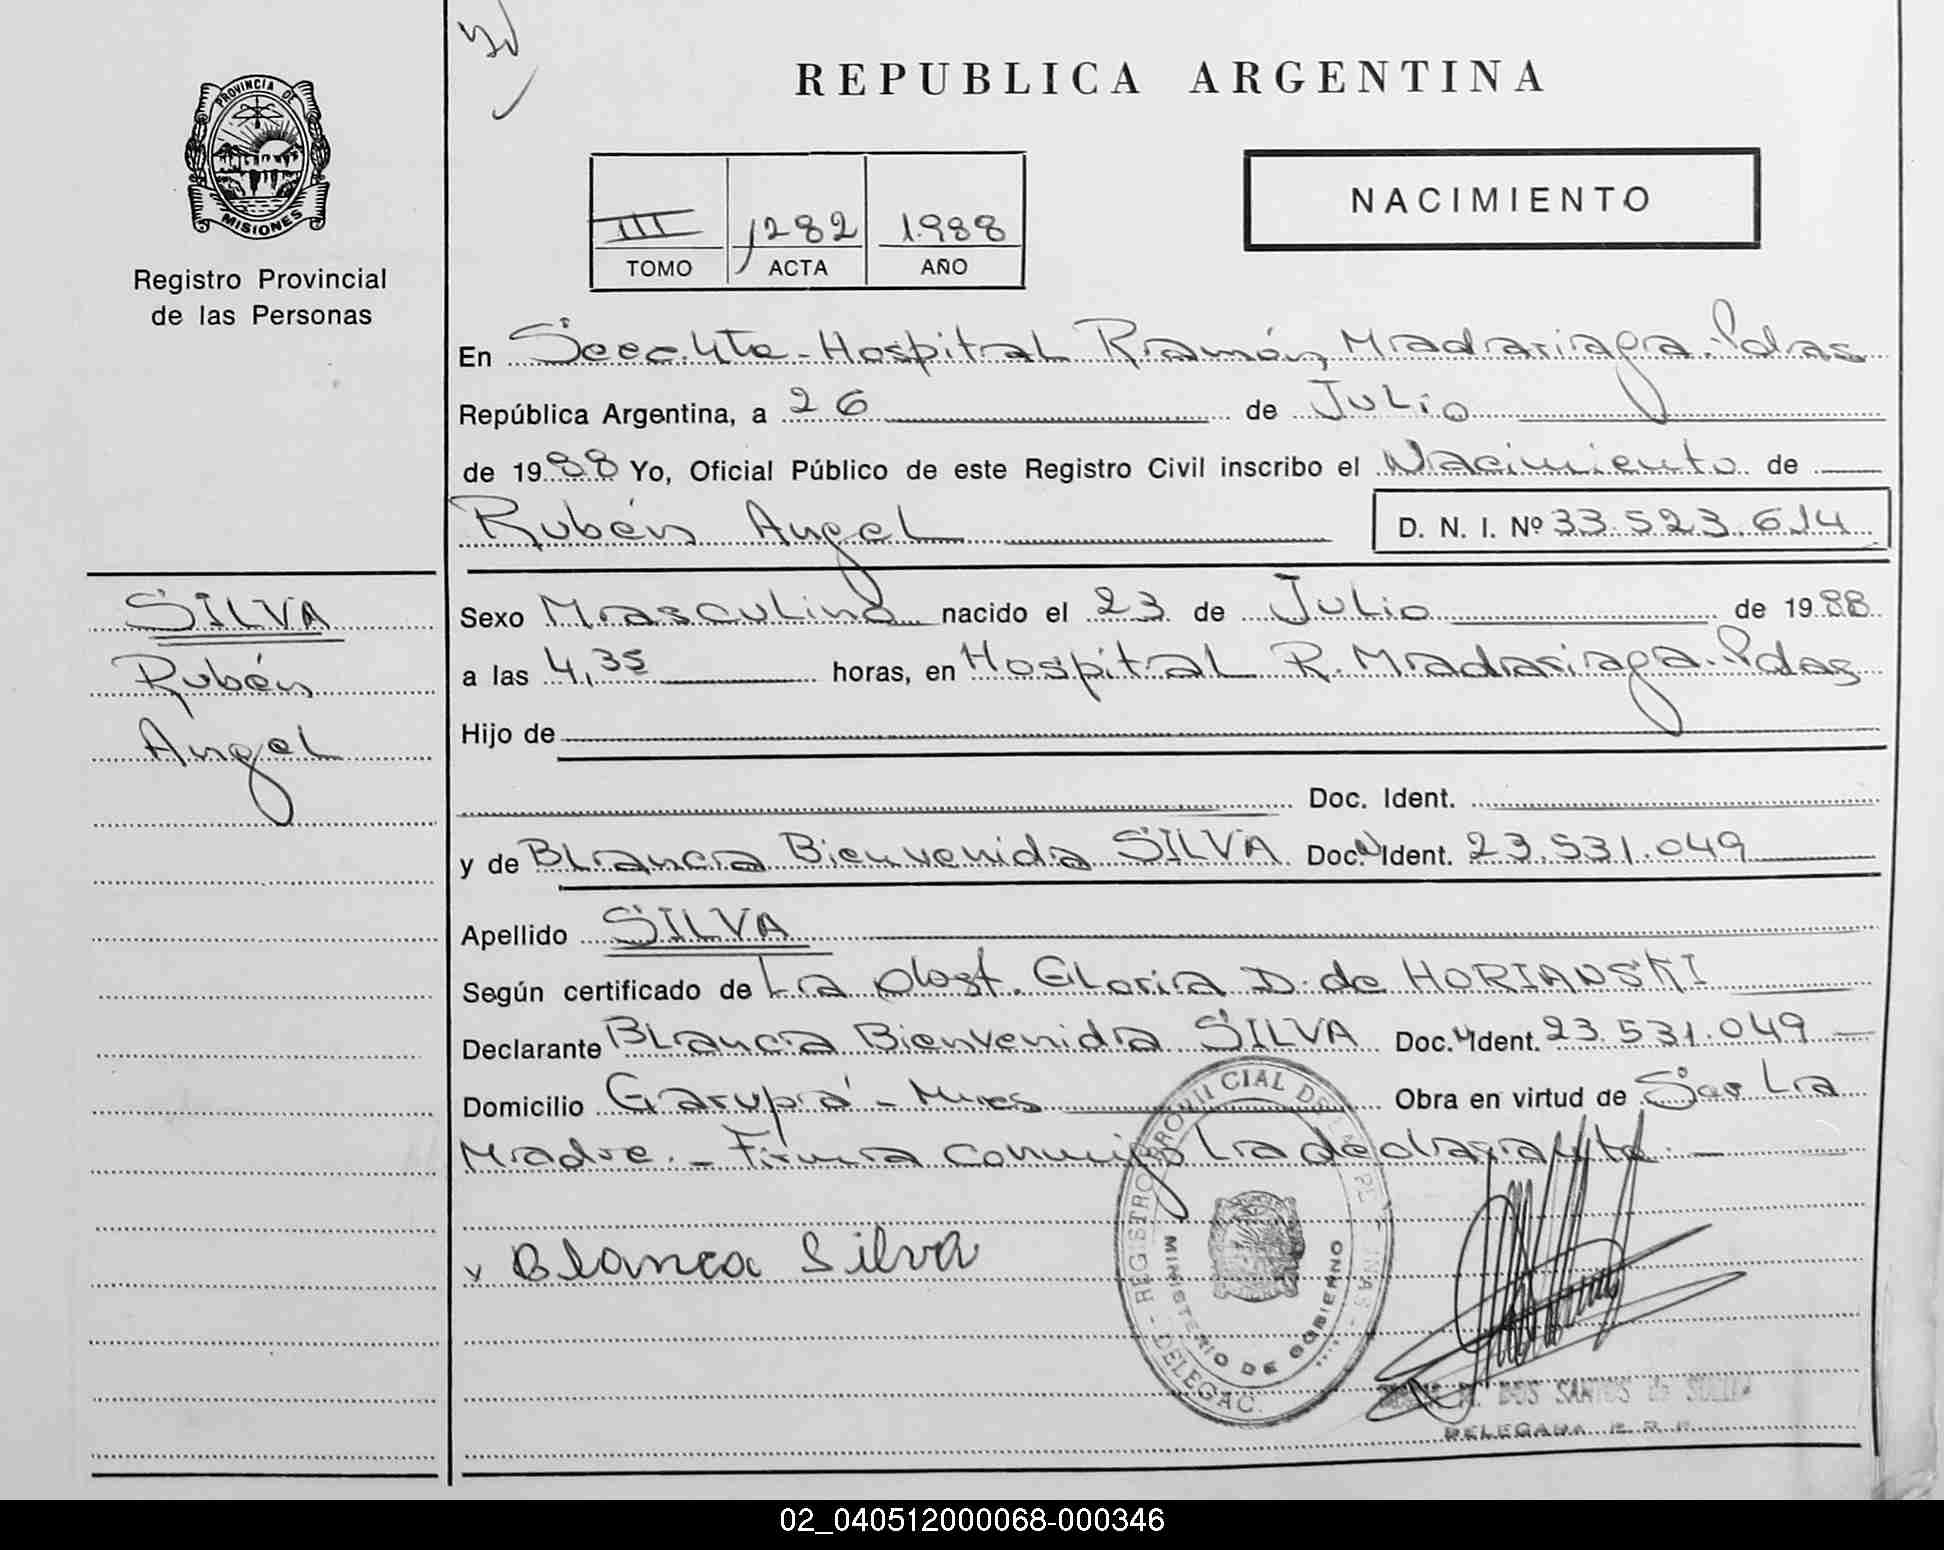 REPUBLICA ARGENTINA
PROVINCIA DE
MISIONES
Registro Provincial
de las Personas
NACIMIENTO
III 1282 1.988
TOMO ACTA AÑO
En Secc. Hospital Ramón Madariaga. Pdas
República Argentina, a 26 de Julio
de 1988 Yo, Oficial Público de este Registro Civil inscribo el Nacimiento de
Rubén Angel D. N. I. Nº 33.523.614
SILVA
Rubén
Angel
Sexo Masculino nacido el 23 de Julio de 1988
a las 4,35 horas, en Hospital R. Madariaga. Pdas
Hijo de
Doc. Ident.
y de Blanca Bienvenida SILVA Doc. N Ident. 23.531.049
Apellido SILVA
Según certificado de La Obst. Gloria D. de HORIANSKI
Declarante Blanca Bienvenida SILVA Doc. N Ident. 23.531.049
Domicilio Garupá - Mnes Obra en virtud de Ser La
Madre. - Firma conmigo La declarante. -
Blanca Silva
MINISTERIO DE GOBIERNO
DELEGAC.
DOS SANTOS de
DELEGADA R. P. P.
02_040512000068-000346